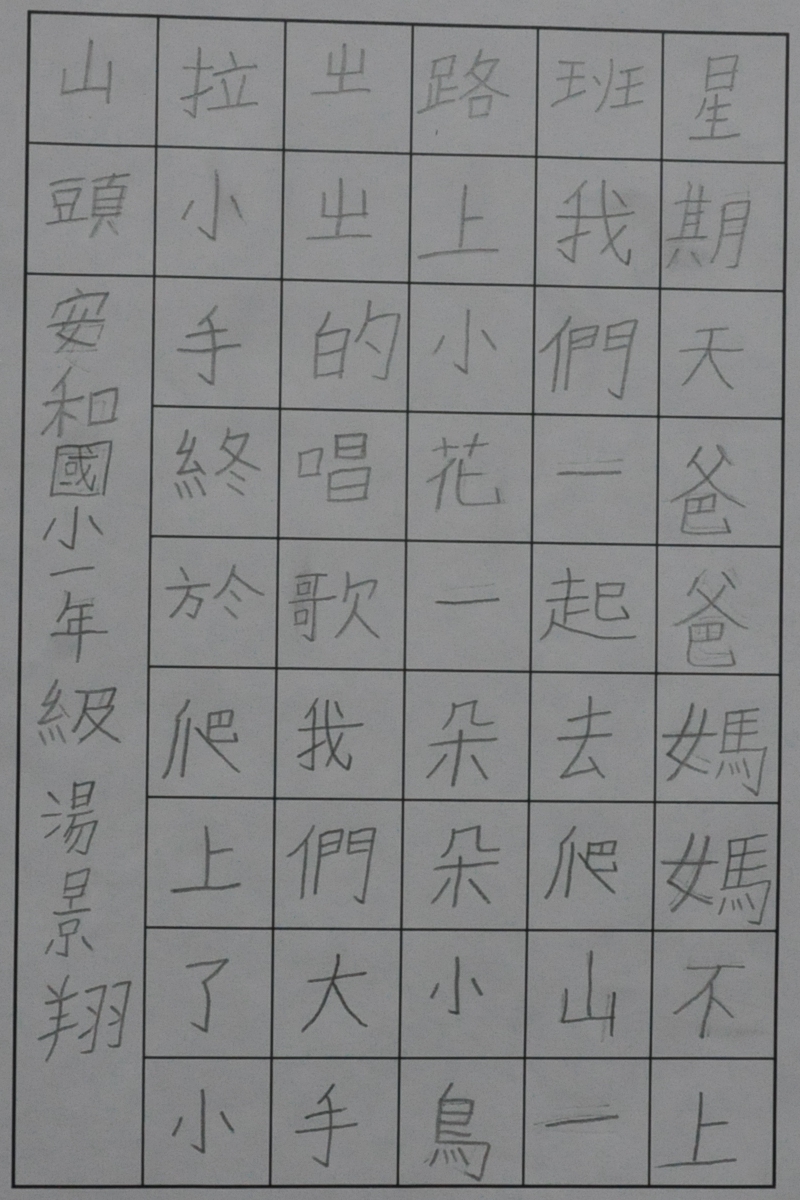 星期天爸爸媽媽不上
班我們一起去爬山一
路上小花一朵朵小鳥
ㄓㄓ的唱歌我們大手
拉小手終於爬上了小
山頭
安和國小一年級湯景翔